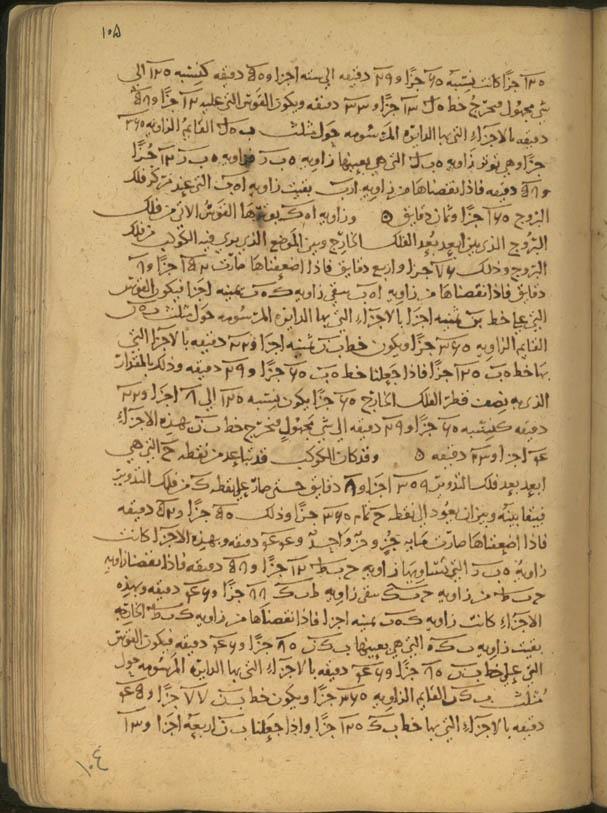 ١٠٥
١٢٥ جزًا كانت نسبه ٦٥ جزًا و٢٩ دقيقه الى سته اجزا و٥٤ دقيقه كنسبه ١٢٥ الى
شى مجهول فيخرج خط ه ل ١٣ جزًا و٣٣ دقيقه ويكون القوس التى عليه ١٢ جزًا و٥٨
دقيقه بالاجزاء التى بها الدايره المرسومه حول مثلث ب ه ل القايم الزاويه ٣٦٥
جزًا وهى توتر زاويه ه ب ل التى هى بعينها زاويه ه ب ز فزاويه ه ب ز ١٢ جزًا
و٥٨ دقيقه فاذا نقصناها من زاويه بقيت زاويه اه ب التى عند مركز فلك
البروج ١٦٥ جزًا وثمان دقايق ه وزاويه اه ك يوترها القوس الاتى من فلك
البروج الذى بين ابعد بعد الفلك الخارج وبين الموضع الذى يرى فيه الكوكب من فلك
البروج وذلك ٧٦ جزا واربع دقايق فاذا اضعفناها صارت ١٥٢ جزًا و٨
دقايق فاذا نقصناها من زاويه اه ب بقى زاويه ك ه ب ثمنيه اجزا فيكون القوس
التى على خط ب ن ثمنيه اجزا بالاجزاء التى بها الدايره المرسومه حول مثلث ب ه ن
القايم الزاويه ٣٦٥ جزًا ويكون خط ب ن ثمنيه اجزا و٢٢ دقيقه بالاجزا التى
بها خط ه ب ١٢٥ جزًا فاذا جعلنا خط ه ب ٦٥ جزًا و٢٩ دقيقه وذلك بالمقدار
الذى به نصف قطر الفلك الخارج ٦٥ جزًا يكون نسبه ١٢٥ الى ٨ اجزا و٢٢
دقيقه كنسبه ٦٥ جزًا و٢٩ دقيقه الى شى مجهول فيخرج خط ب ن بهذه الاجزاء
اجزا و٣٣ دقيقه ه وقد كان الكوكب قد تباعد من نقطه ح التى هى
ابعد بعد فلك التدوير ٣٥٩ اجزا و٨ دقايق حتى صار على نقطه ك من فلك التدوير
فبقا بينه وبين ان يعود الى نقطه ح تمام ٣٦٥ جزًا وذلك جزًا و دقيقه
فاذا اضعفناها صارت مايه جز وجز واحد و دقيقه وبهذه الاجزا كانت
زاويه ه ب ز التى تساويها زاويه ح ب ط ١٢ جزًا و٥٨ دقيقه فاذا نقصنا زاويه
ح ب ط من زاويه ح ب ك بقى زاويه ط ب ك ٨٨ جزًا و دقيقه وبهذه
الاجزاء كانت زاويه ك ه ب ثمنيه اجزا فاذا نقصناها من زاويه ك ب ط الخارجه
بقيت زاويه ب ك ه التى هى بعينها ب ك ن ٨٥ جزًا و دقيقه فيكون القوس
التى على خط ب ن ٨٥ جزًا و دقيقه بالاجزاء التى بها الدايره المرسومه حول
مثلث ب ك ن القايم الزاويه ٣٦٥ جزًا ويكون خط ب ن ٧٧ جزًا و
دقيقه بالاجزاء التى بها خط ب ك ١٢٥ جزًا واذا جعلنا ب ن اربعه اجزا و٣٣
١٠٤